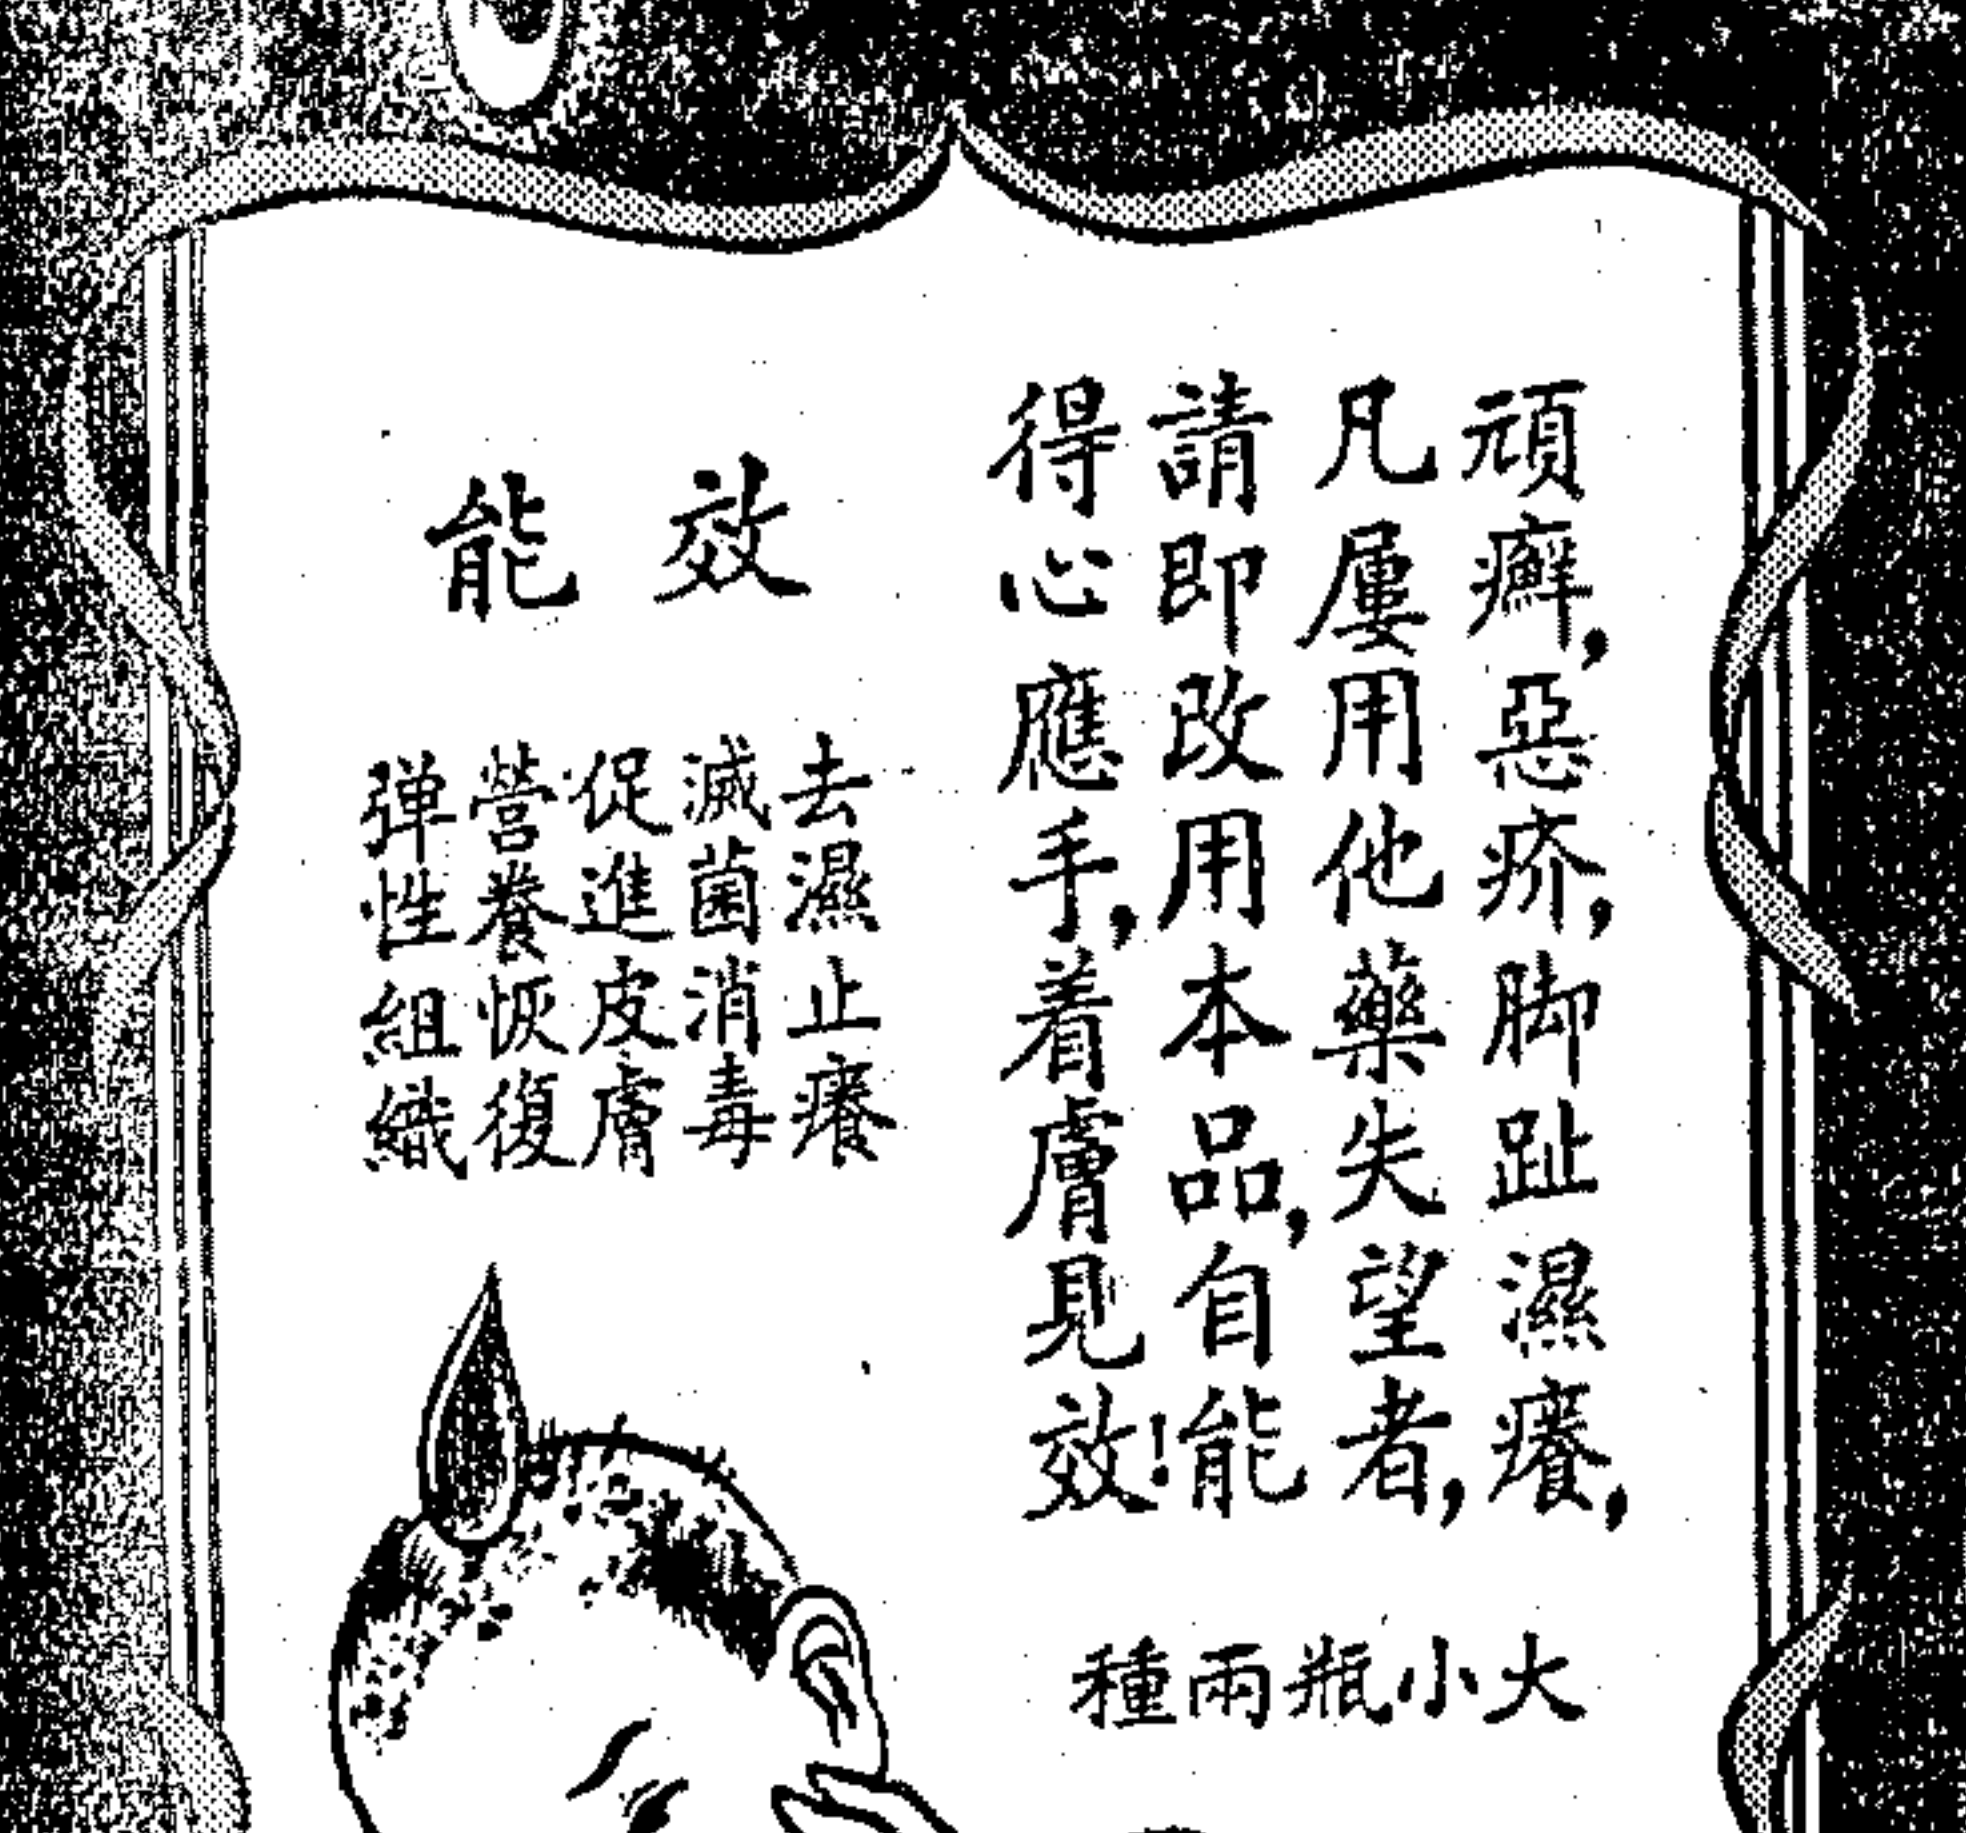 頑癬,惡疥,脚趾濕癢,
凡屢用他藥失望者,
請即改用本品,自能
得心應手,着膚見效!
大小瓶兩種
效能
去濕止癢
滅菌消毒
促進皮膚
營養恢復
弹性組織